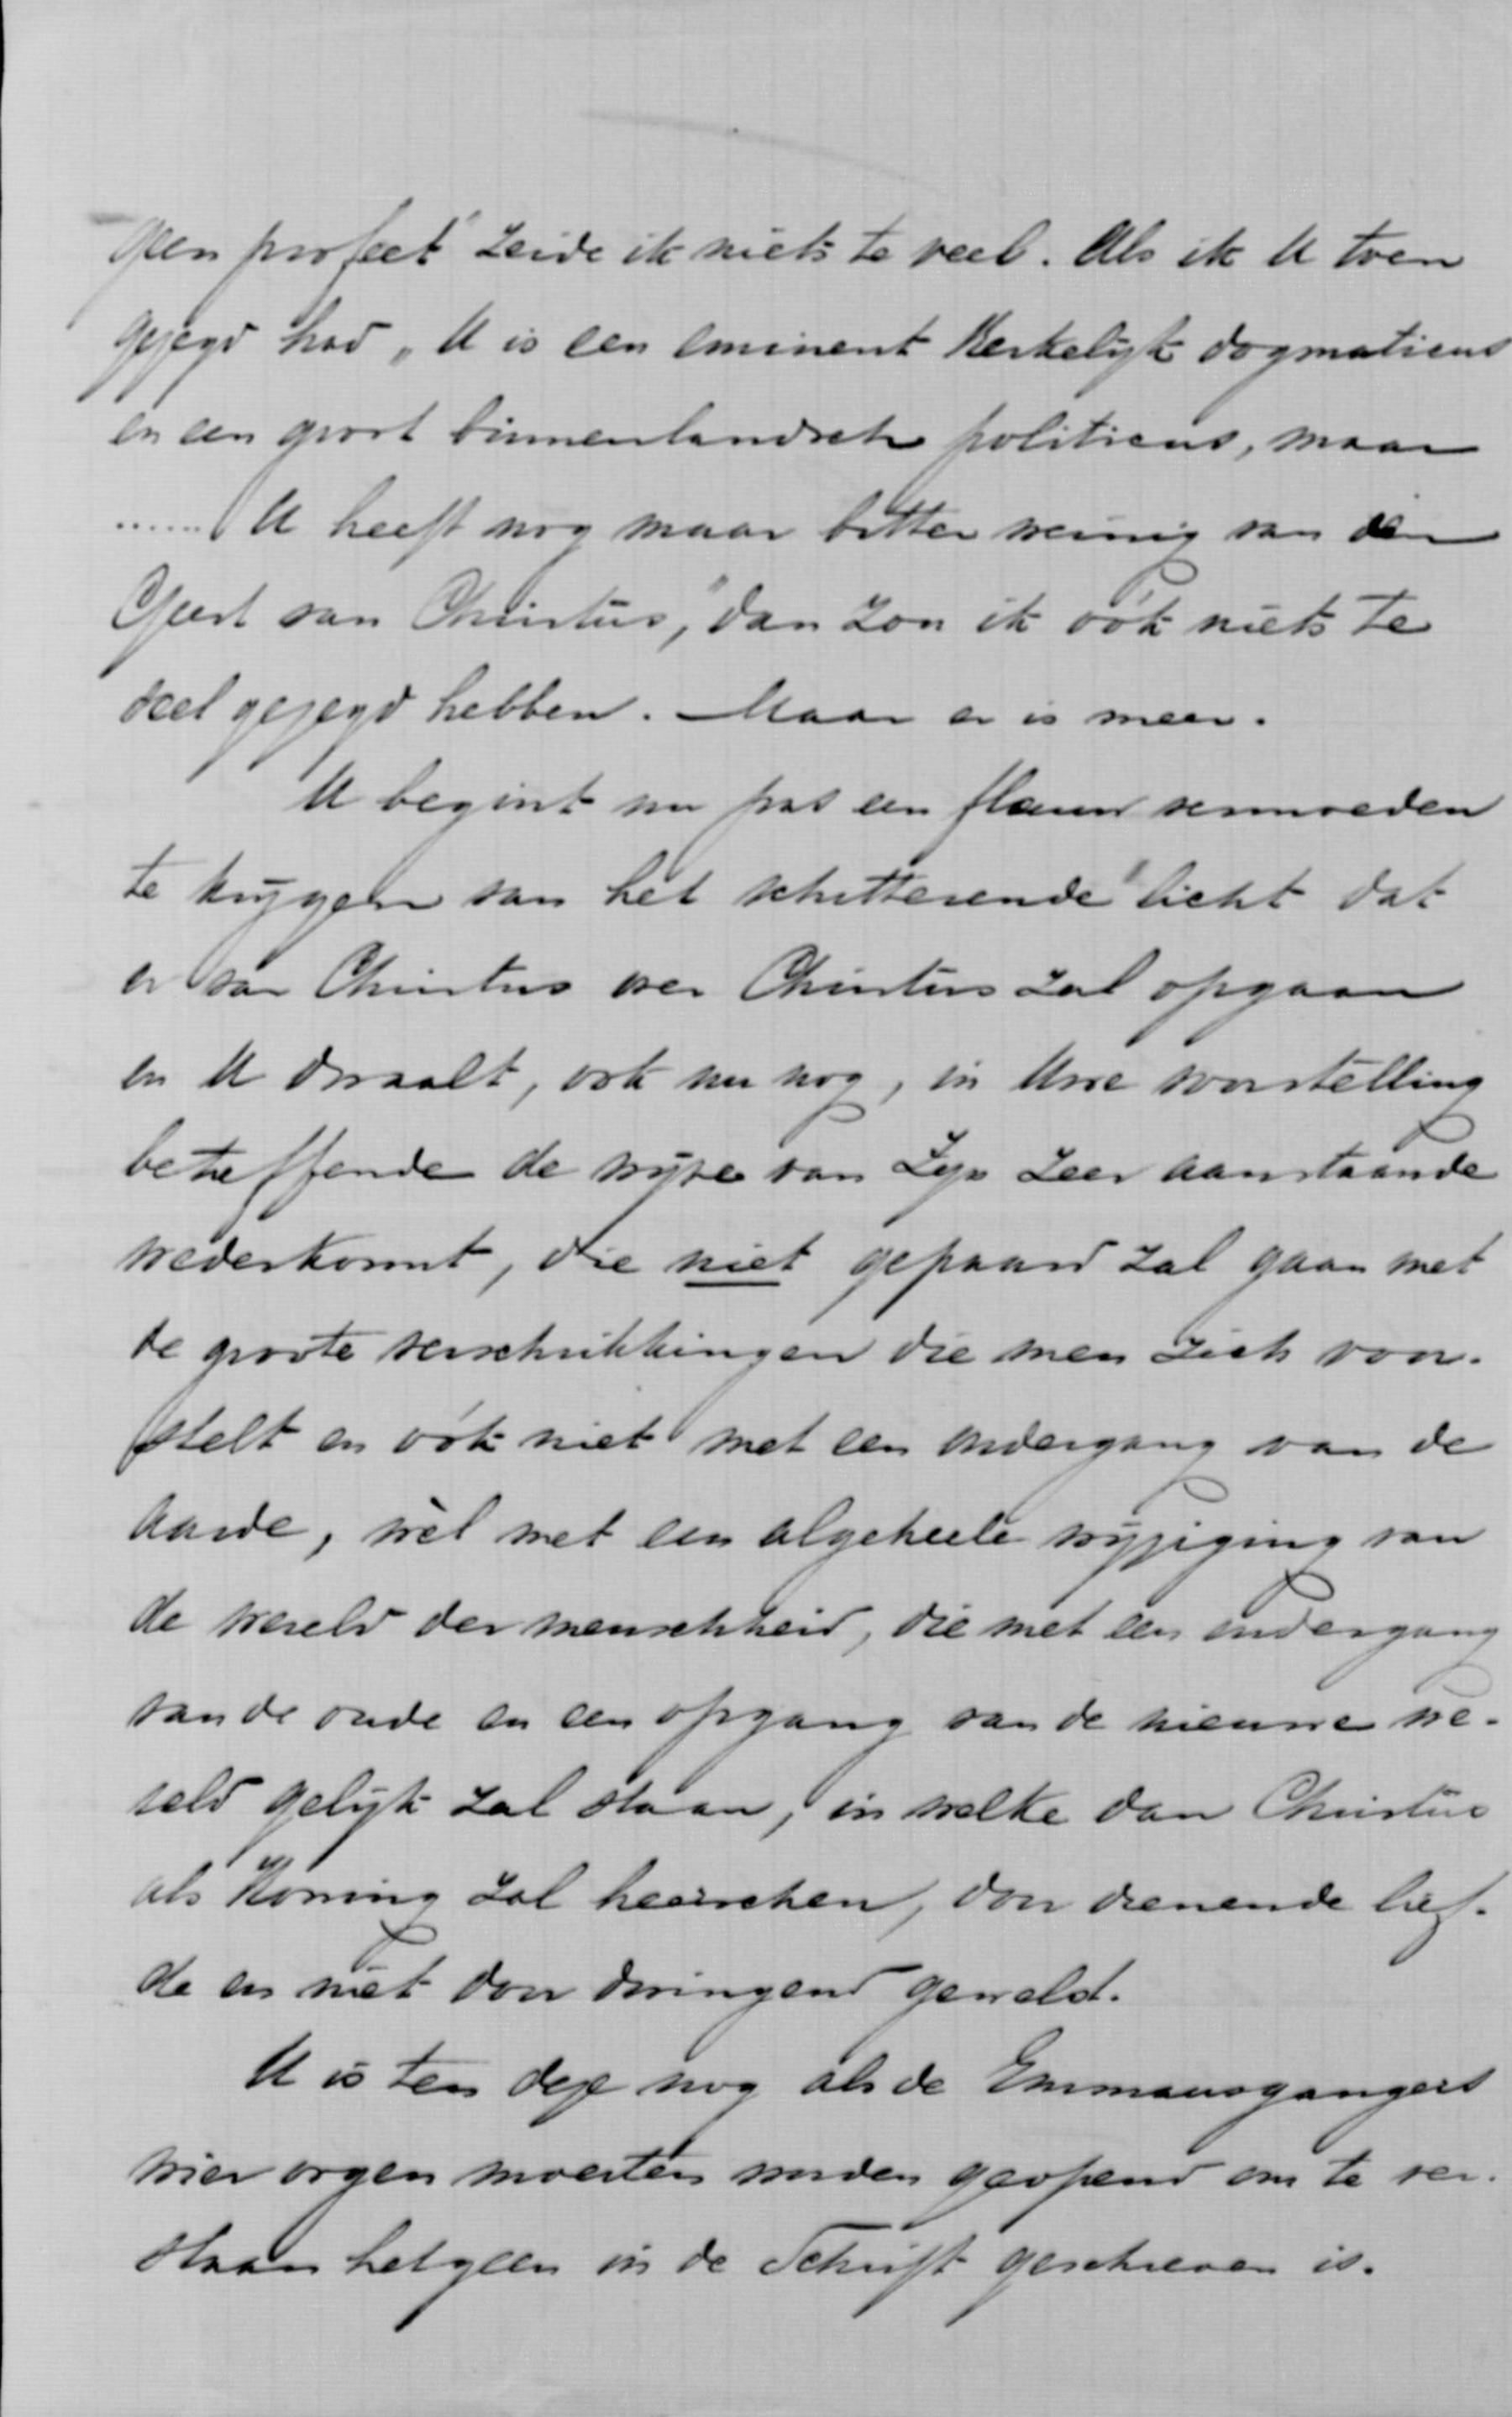 geen profeet" zeide ik niets te veel. Als ik U toen
gezegd had „U is een eminent Kerkelijk dogmaticus
en een groot binnenlandsch politicus, maar
...... U heeft nog maar bitter weinig van den
Geest van Christus," dan zou ik óók niets te
veel gezegd hebben. Maar er is meer.
U begint nu pas een flauw vermoeden
te krijgen van het schitterende licht dat
er van Christus over Christus zal opgaan
en U dwaalt, ook nu nog, in Uwe voorstelling
betreffende de wijze van Zijn zeer aanstaande
wederkomst, die niet gepaard zal gaan met
de groote verschrikkingen die men zich voor-
stelt en óók niet met een ondergang van de
aarde, wèl met een algeheele wijziging van
de wereld der menschheid, die met een ondergang
van de oude en een opgang van de nieuwe we-
reld gelijk zal staan, in welke dan Christus
als Koning zal heerschen, door dienende lief-
de en niet door dwingend geweld.
U is ten deze nog als de Emmausgangers
wier oogen moesten worden geopend om te ver-
staan hetgeen in de Schrift geschreven is.